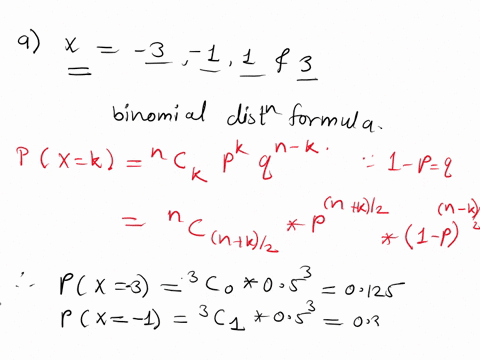 a) x = -3, -1, 1 & 3
binomial distⁿ formula.
P(X=k) = ⁿC_k p^k q^(n-k) ∵ 1-p=q
= ⁿC_(n+k)/2 * p^(n+k)/2 * (1-p)^(n-k)/2
∴ P(X=-3) = ³C₀ * 0.5³ = 0.125
P(X=-1) = ³C₁ * 0.5³ = 0.3